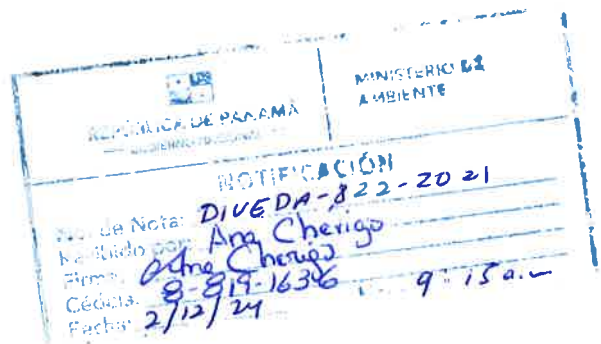 REPÚBLICA DE PANAMÁ
MINISTERIO DE
AMBIENTE
NOTIFICACIÓN
No. de Nota: DIVEDA-822-2021
Recibido por: Ana Cherigo
Firma: Ana Cherigo
Cédula: 8-819-1636
Fecha: 2/12/24 9:15 a.m